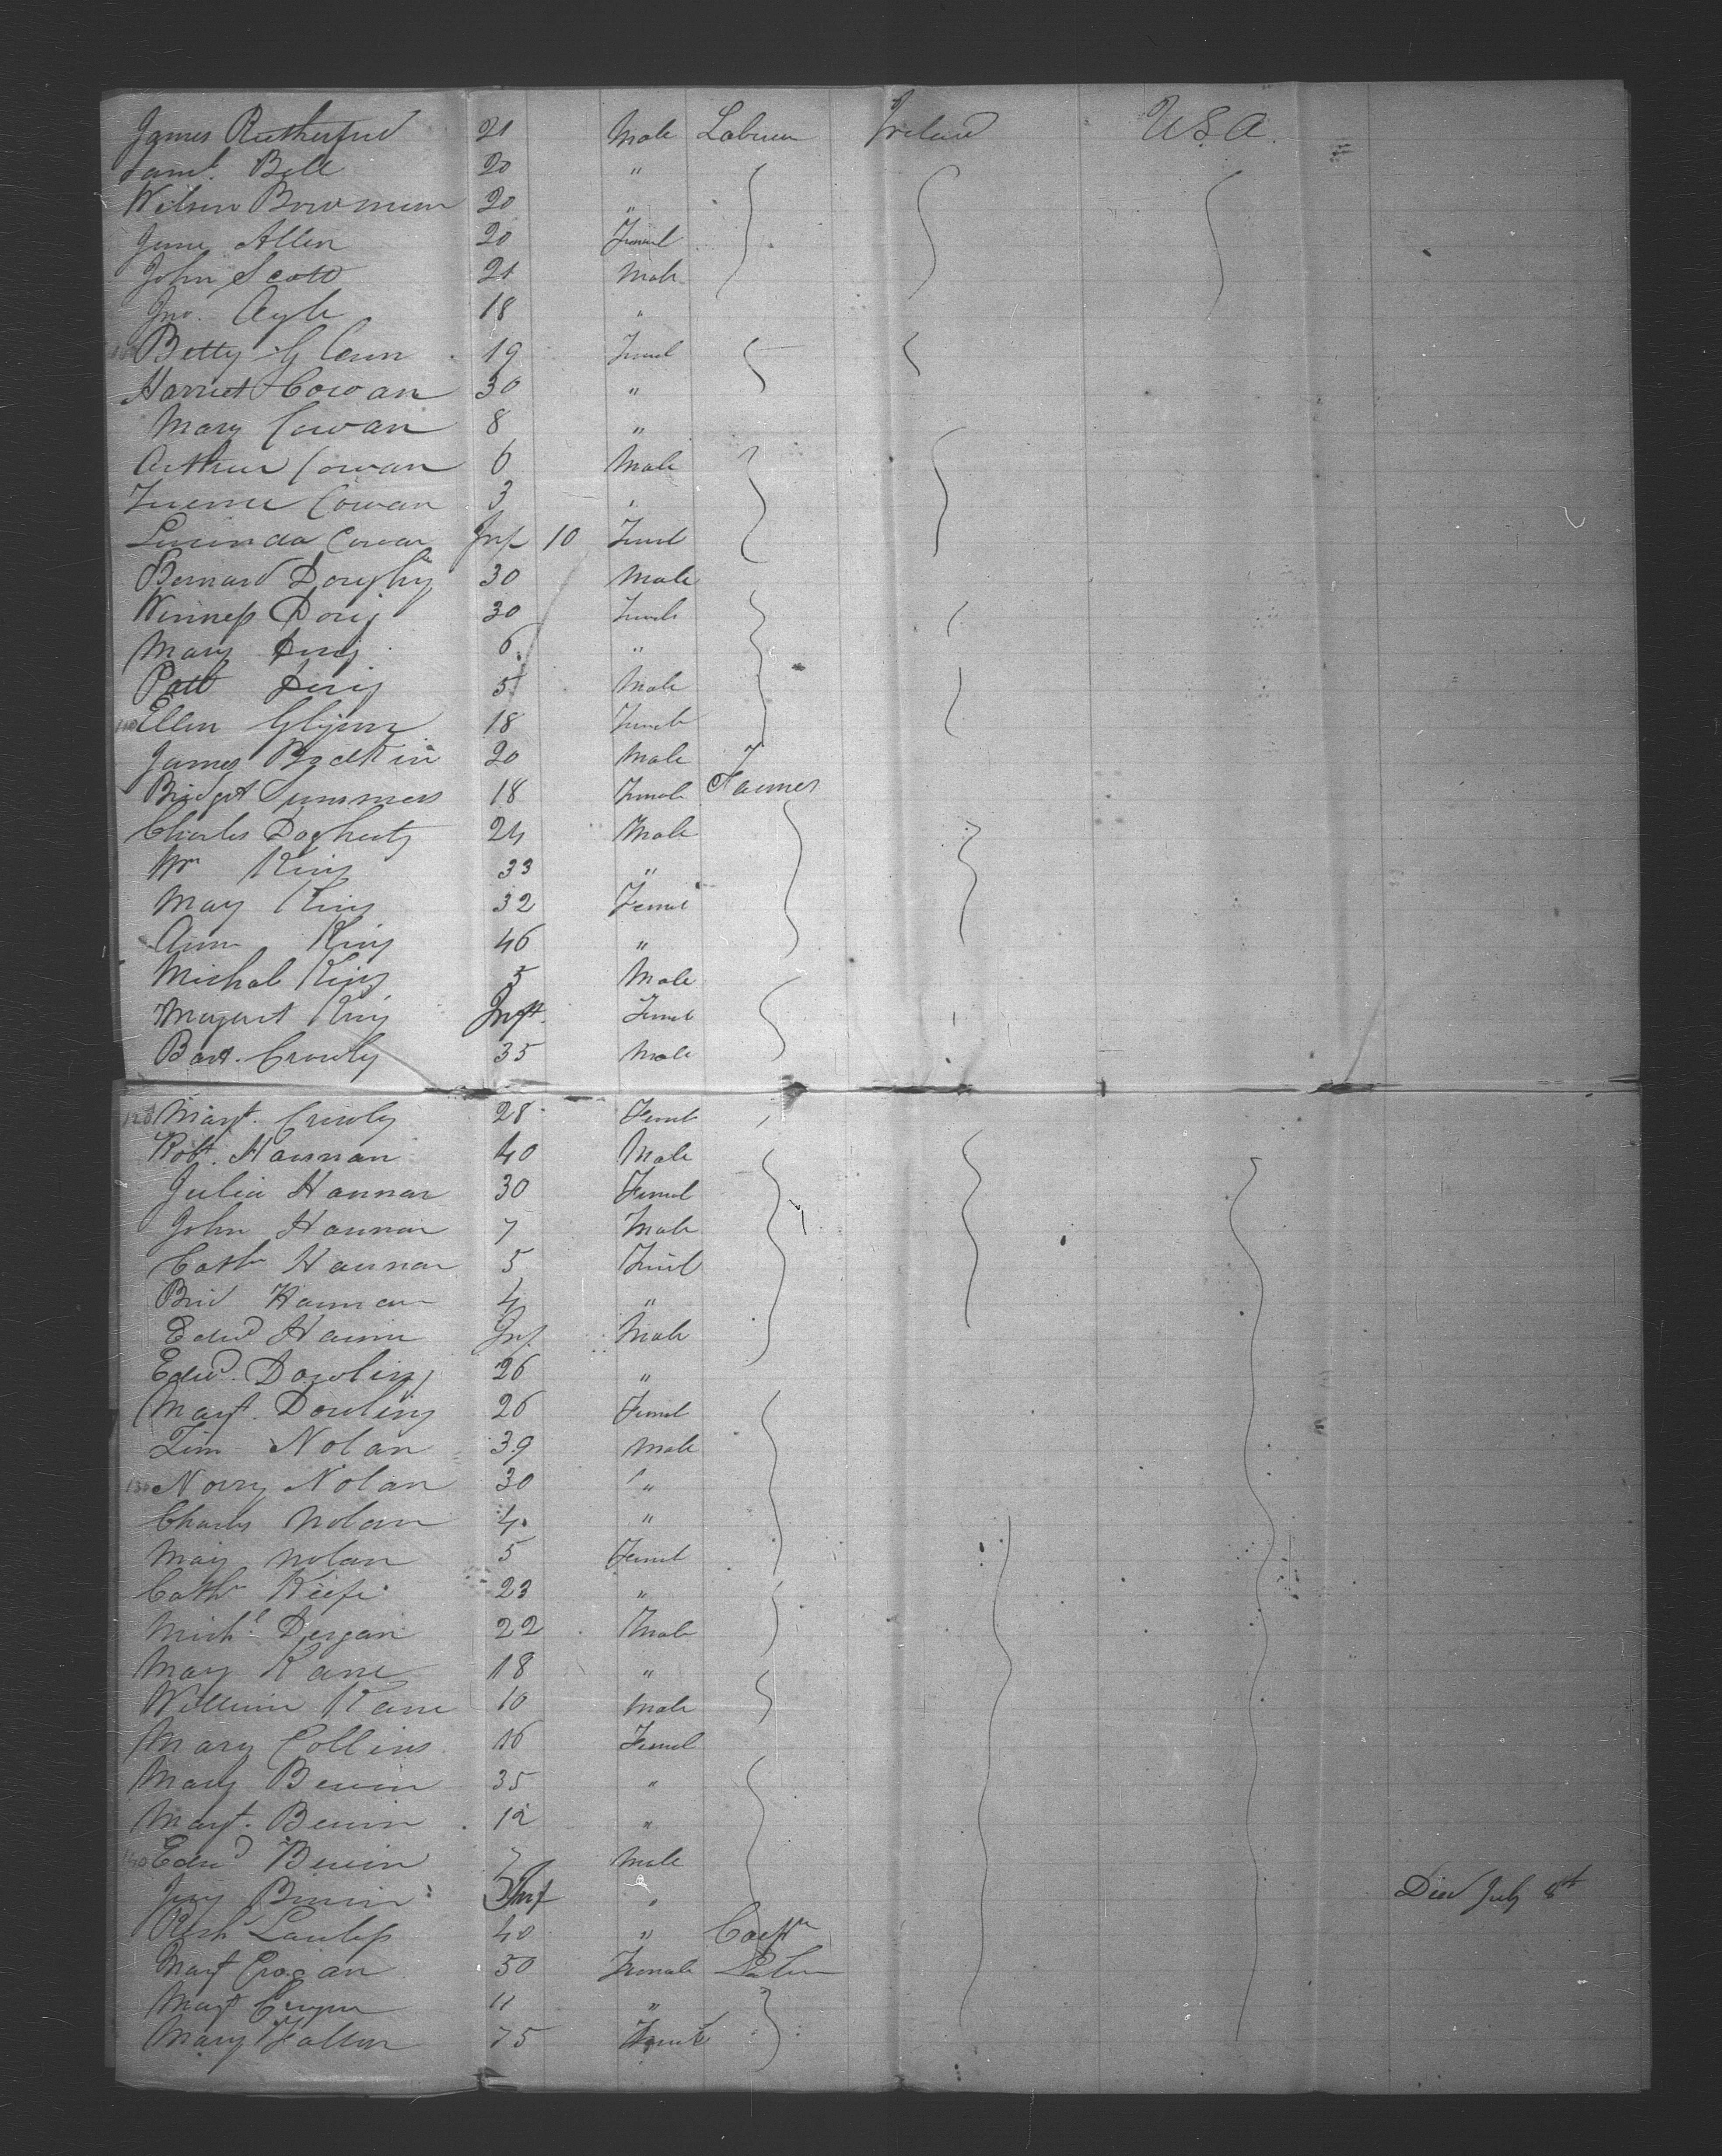 James Rutherfurd 21 Male Laburer Ireland U.S.A.
Saml. Bell 20 "
Wilson Bowman 20 "
Jane Allen 20 Femal
John Scott 21 Male
Jno. Ayle 18 "
Betty Glenn 19 Femal
Harriet Cowan 30 "
Mary Cowan 8 "
Arthur Cowan 6 Male
Cowan 3 "
Lucinda Cowan Inf 10 Femal
Bernard 30 Male
30 Female
Mary 6 "
Patt 5 Male
110 Ellen Glynn 18 Female
James Bodkin 20 Male
Bridget Summers 18 Female Farmer
Charles Dogherty 24 Male
Wm King 33 "
Mary King 32 Femal
Ann King 46 "
Michal King 5 Male
Margaret King Inft. Femal
Bart. Crowly 35 Male
120 Margt. Crowly 28 Femal
Robt. Hannan 40 Male
Julia Hannan 30 Femal
John Hannan 7 Male
Cathn Hannan 5 Femal
Brid Hannan 4 "
Edwd Hannn Inf. Male
Edwd. Dowling 26 "
Margt. Dowling 26 Femal
Tim Nolan 39 Male
130 Norry Nolan 30 "
Charles Nolan 4 "
Mary Nolan 5 Femal
Cathn Keefe 23 "
Michl Dergan 22 Male
Mary Kane 18 "
William Kane 10 Male
Mary Collins 16 Femal
Mary Berrin 35 "
Margt. Berrin 12 "
140 Edwd Berrin 7 Male
Berrin Inf " Died July 8th
Rich 40 "
Margt 50 Female
Margt 11 "
Mary 75 Female